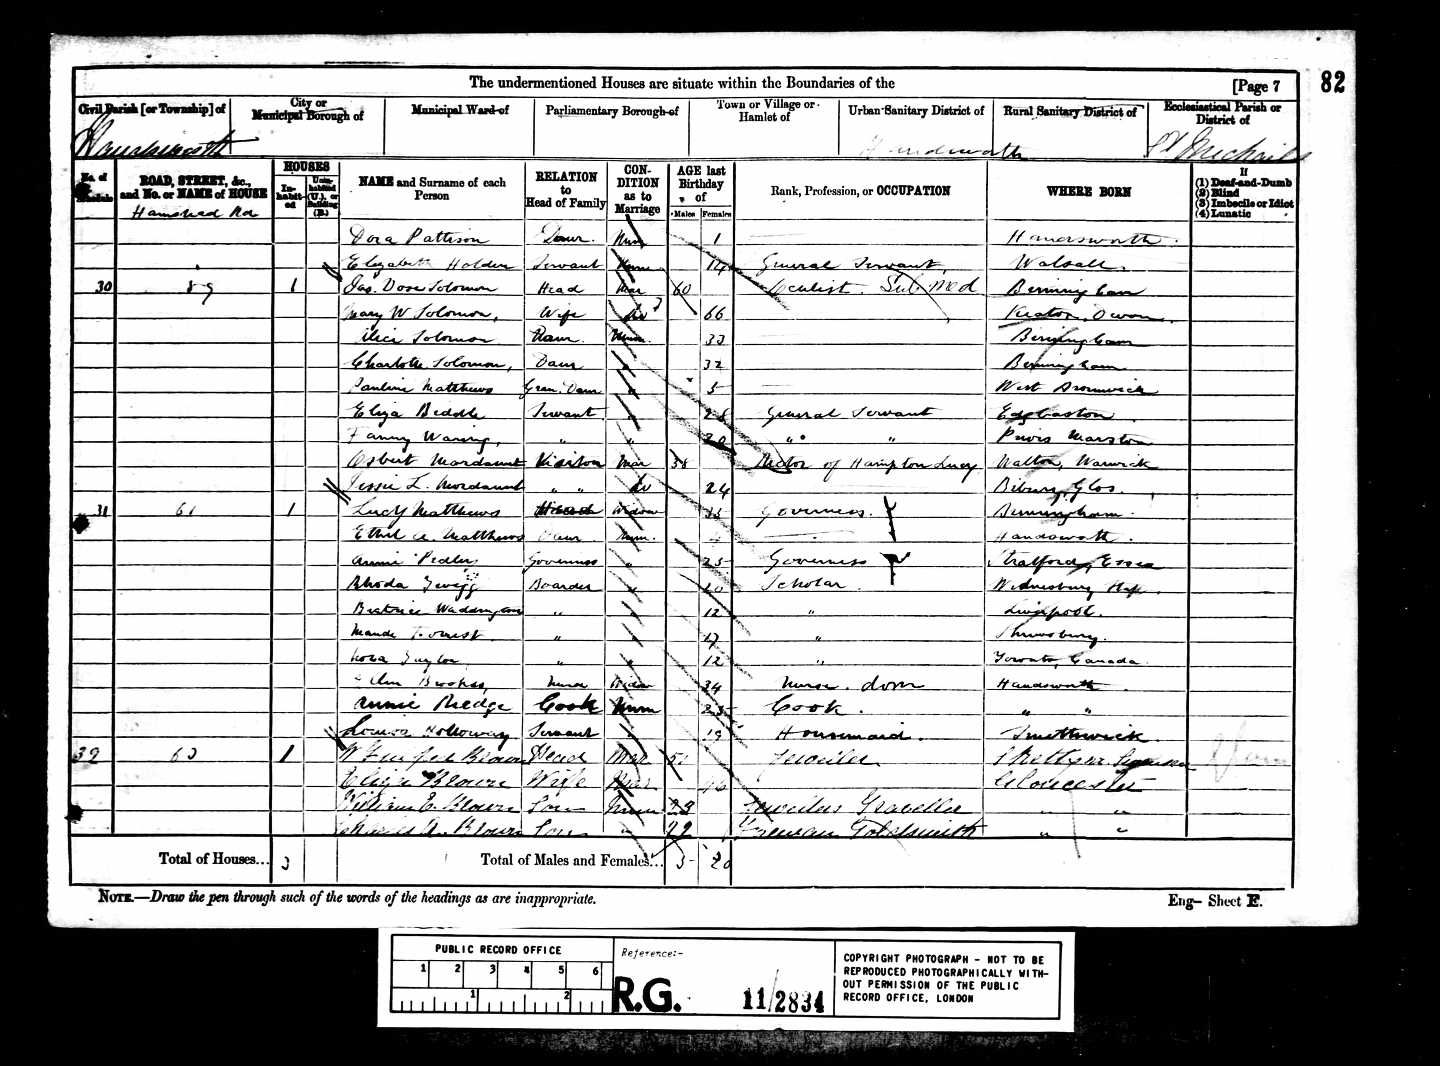 The undermentioned Houses are situate within the Boundaries of the [Page 7 82
Civil Parish [or Township] of City or Municipal Borough of Municipal Ward of Parliamentary Borough of Town or Village or Hamlet of Urban Sanitary District of Rural Sanitary District of Ecclesiastical Parish or District of
Handsworth Handsworth St Michaels
No. of Schedule ROAD, STREET, &c., and No. or NAME of HOUSE HOUSES Inhabited Uninhabited (U.), or Building (B.) NAME and Surname of each Person RELATION to Head of Family CONDITION as to Marriage AGE last Birthday of Males Females Rank, Profession, or OCCUPATION WHERE BORN If (1) Deaf-and-Dumb (2) Blind (3) Imbecile or Idiot (4) Lunatic
Hamstead Rd
Dora Pattison Daur. Unm 1 Handsworth
Elizabeth Holder Servant Unm 14 General Servant Walsall
30 59 1 Jas. Dove Solomon Head Mar 60 Oculist. Birmingham
Mary W Solomon, Wife Do 66 Devon
Alice Solomon Daur. Unm. 33 Birmingham
Charlotte Solomon, Daur " 32 Birmingham
Pauline Matthews Gran. Daur " 5 West Bromwich
Eliza Biddle Servant " 28 General Servant Edgbaston
Fanny Waring, " " 20 " " Priors Marston
Osbert Mordaunt Visitor Mar 38 Rector of Hampton Lucy Walton, Warwick
Jessie L. Mordaunt " " Do 24 Bibury, Glos.
31 61 1 Lucy Matthews Head Widow 35 Governess. Birmingham
Ethel A. Matthews Daur Unm. 4 Handsworth.
Annie Pedler Governess " 25 Governess Stratford, Essex
Rhoda Boarder " Scholar Wednesbury
Beatrice Waddington " " 12 " Liverpool.
Maude Forrest " " 17 " Shrewsbury.
Nora Taylor " " 12 " Toronto, Canada
Ann Brookes, Nurse Widow 34 Nurse. dom Handsworth.
Annie Hedge Cook Unm 25 Cook. " "
Louisa Holloway Servant " 19 Housemaid. Smethwick.
32 63 1 Brown Head Mar Jeweller Sketty Swansea
Eliza Brown Wife Mar 46 Gloucester
William E. Brown Son Unm 23 Jewellers Traveller " "
Charles A. Brown Son " 22 Foreman Goldsmith " "
Total of Houses... 3 Total of Males and Females... 5 20
NOTE.—Draw the pen through such of the words of the headings as are inappropriate. Eng- Sheet E.
PUBLIC RECORD OFFICE
1 2 3 4 5 6
1 2
Reference:-
R.G. 11/2834
COPYRIGHT PHOTOGRAPH - NOT TO BE
REPRODUCED PHOTOGRAPHICALLY WITH-
OUT PERMISSION OF THE PUBLIC
RECORD OFFICE, LONDON